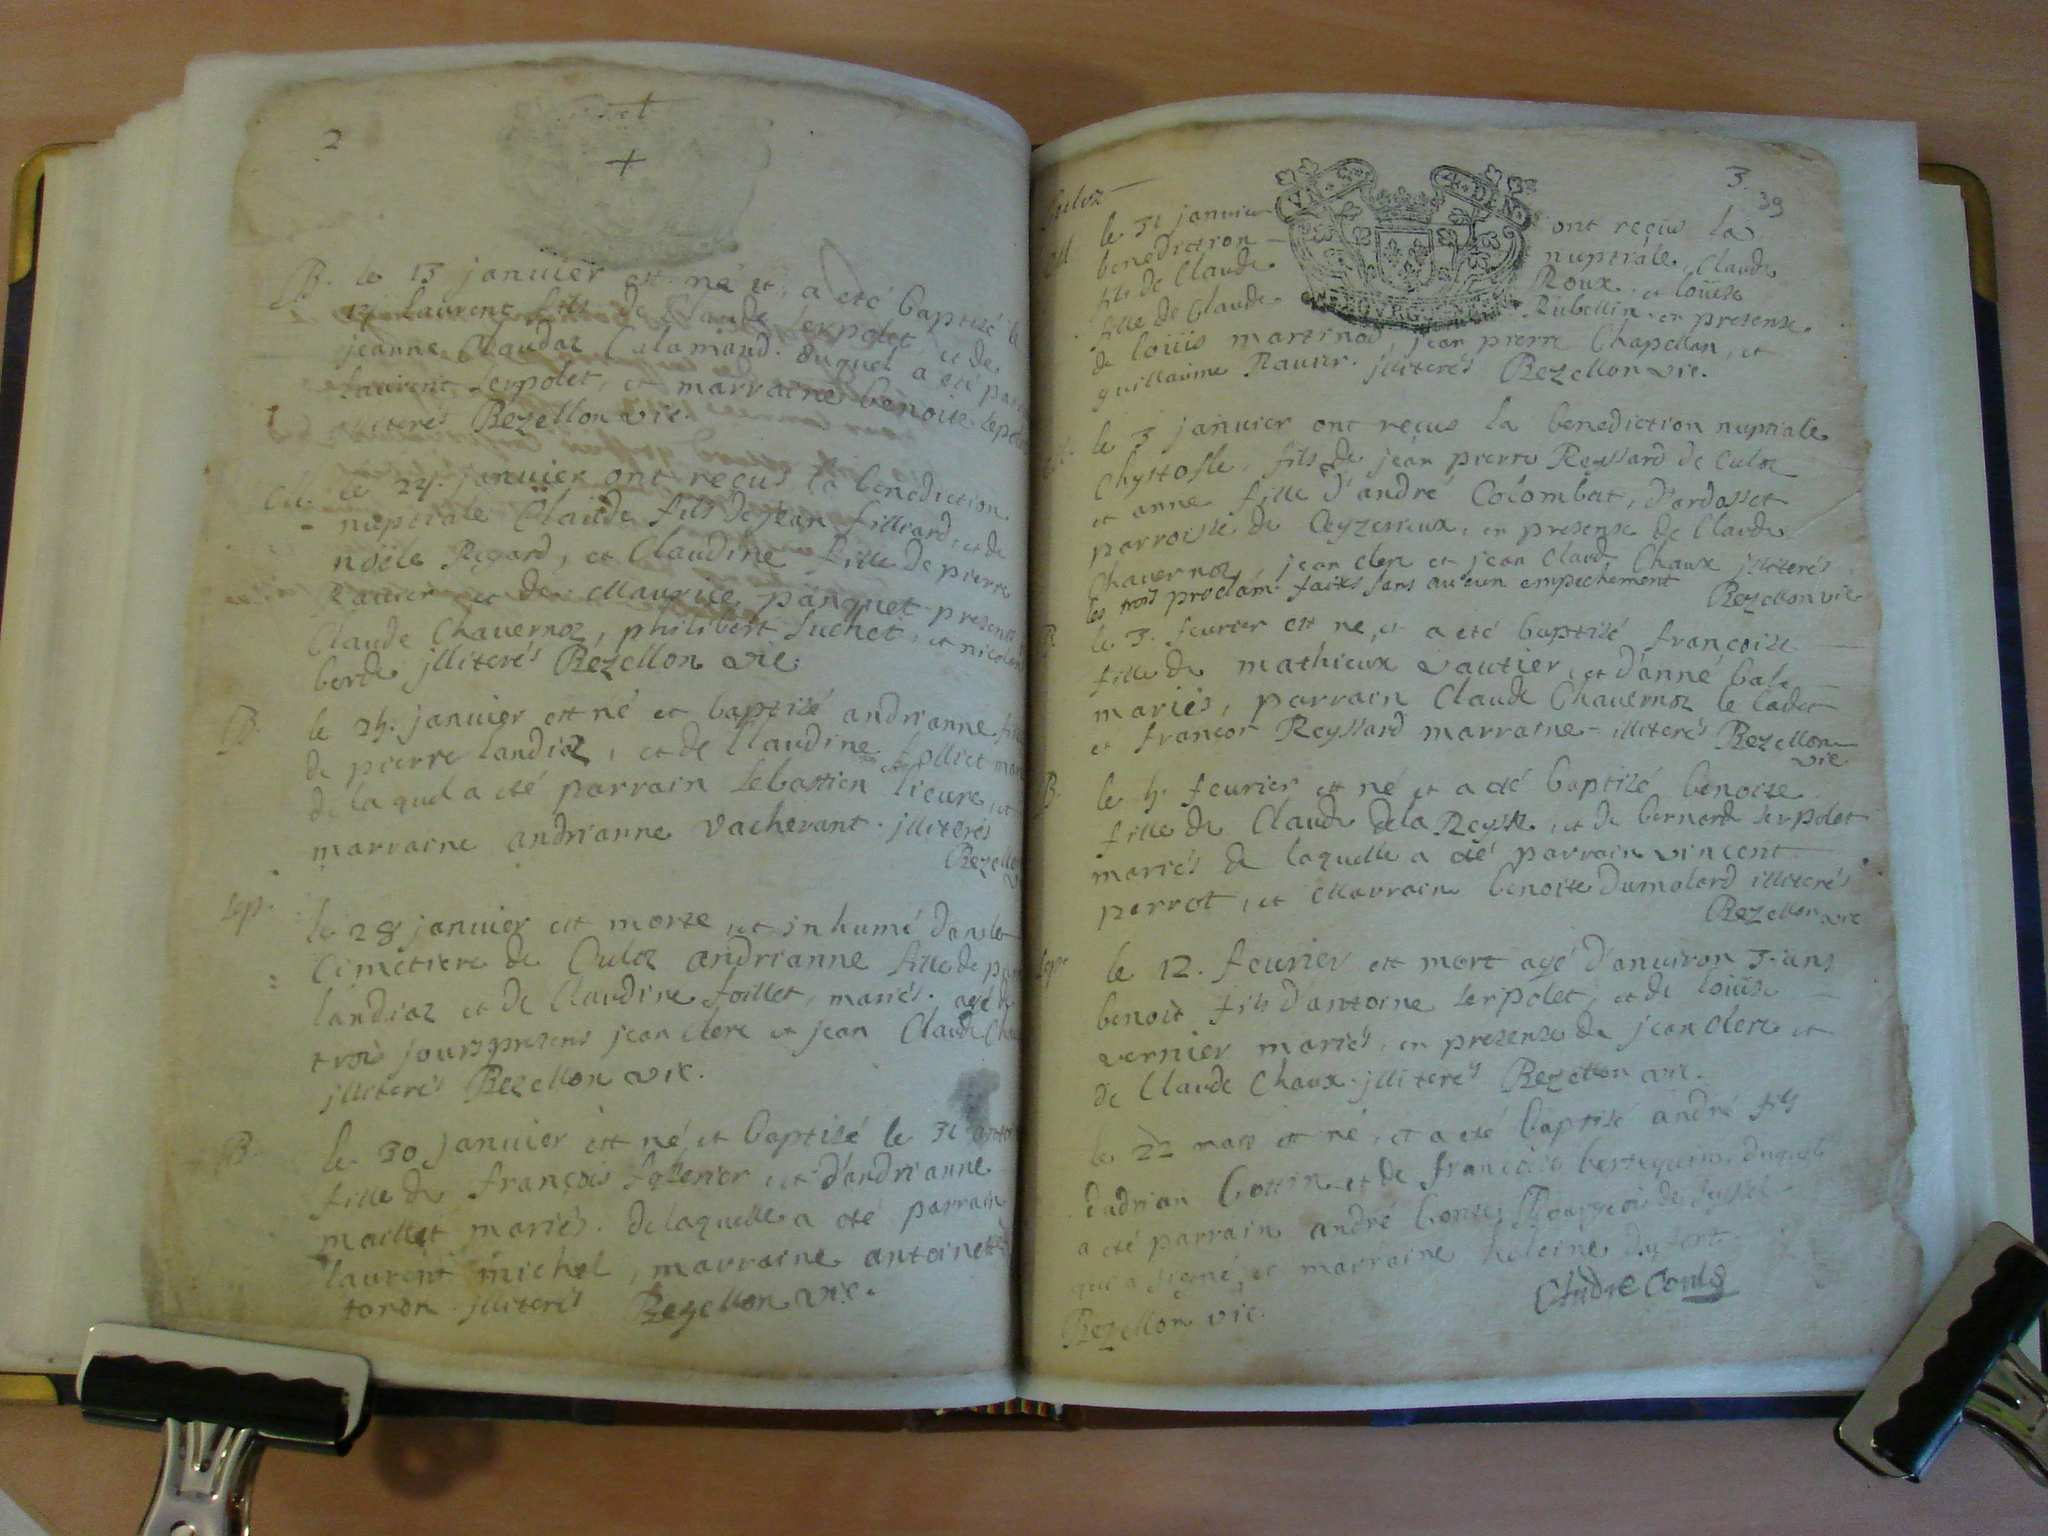 2
B. le 13 janvier est né et a eté baptisé le
14 laurent fils de Claude serpolet, et de
jeanne Claudaz Calamand. duquel a été
laurent serpolet, et marraine benoite
illiterés Bezellon vic.
Cel. le 24. janvier ont reçus la benediction
nuptiale Claude fils de jean filliard, et de
noële Regard, et Claudine fille de pierre
Ravier et de Maurice panquet presens
Claude Chavernoz, philibert suchet, et nicolas
borde illiterés Bezellon vic.
B. le 25. janvier est né et baptisé andrianne
de pierre landiaz, et de Claudine follict
de laquel a eté parrain sebastien lieure, et
marraine andrianne vachevant. illiterés
Bezellon
sep. le 28 janvier est morte, et inhumé dans le
Cimétiere de Culoz andrianne fille de
landiaz et de Claudine foillet, mariés. agé de
trois jours presens jean Clerc et jean Claude
illiterés Bezellon vic.
B. le 30 janvier est né, et baptisé le 31
fille de françois et d'andrianne
maillet mariés. de laquelle a eté parrain
laurent michel, marraine antoinette
tonon. illiterés Bezellon vic.
3
39
Culoz
Cel le 31 janvier ont reçus la
benediction nuptiale Claude
fils de Claude Roux, et louïse
fille de Claude Rubellin en presense
de louïs martinod, jean pierre Chapellon, et
guillaume Ravier. illiterés Bezellon vic.
le 3 janvier ont reçus la benediction nuptiale
Chrystofle, fils de jean pierre Reyssard de Culoz
et anne fille d'andré Colombat, d'ardosset
parroisse de Ceyzerieux, en presense de Claude
Chavernoz, jean clerc et jean Claude Chaux illiterés
les trois proclam. faites sans aucun empechement
Bezellon vic
B. le 3. fevrier est né, et a eté baptisé françoise
fille de mathieux vautier, et d'anne bal
mariés, parrain Claude Chavernoz le Cadet
et françoi Reyssard marraine illiterés Bezellon
vic
B. le 5. fevrier est né et a eté baptisé benoite
fille de Claude dela Reysse, et de bernard serpolet
mariés de laquelle a eté parrain vincent
perrot, et marraine benoite dumolard illiterés
Bezellon vic
sep. le 12. fevrier est mort agé d'anviron 3. ans
benoit fils d'antoine serpolet, et de louïse
vernier mariés, en presense de jean clerc et
de Claude Chaux. illiterés Bezellon vic.
le 22 mars est né, et a eté baptisé andré fils
d'adrian Gottin et de françoise duquel
a eté parrain andré Conte, Bourgeois de seyssel
qui a signé, et marraine heleine dufort
Bezellon vic.
André Conte